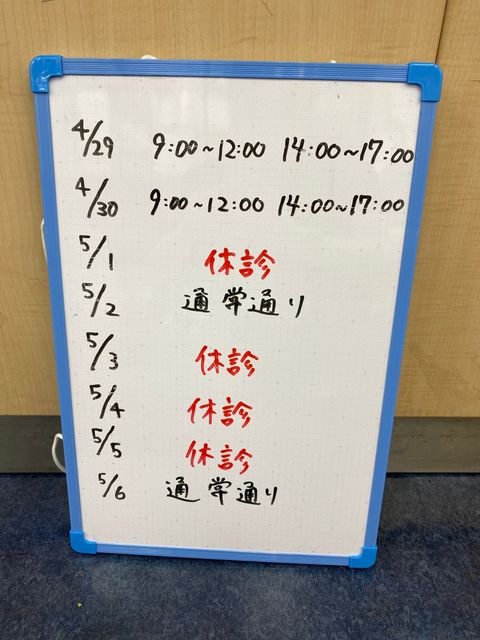 4/29 9:00~12:00 14:00~17:00
4/30 9:00~12:00 14:00~17:00
5/1 休診
5/2 通学通り
5/3 休診
5/4 休診
5/5 休診
5/6 通学通り